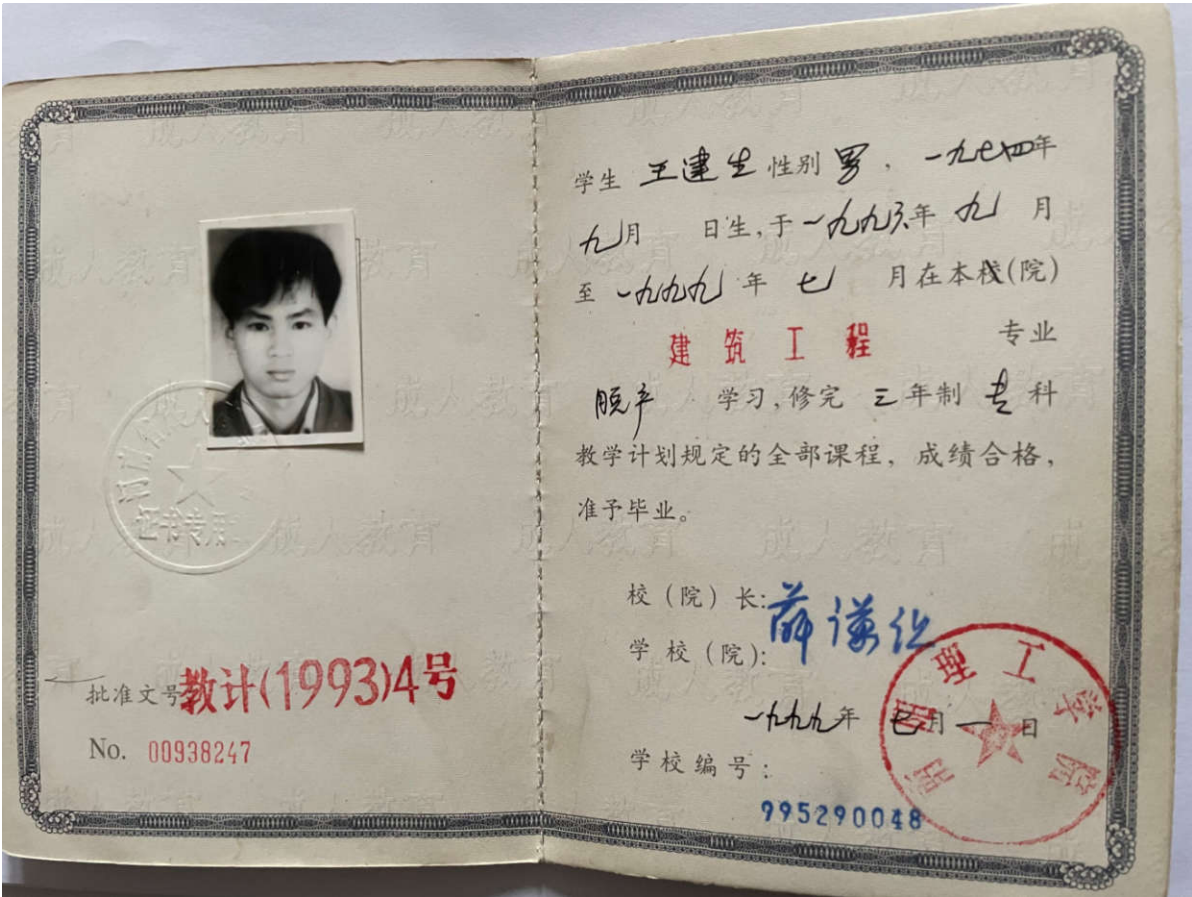 证书专用
批准文号 教计(1993)4号
No. 00938247
学生 王建生 性别 男 , 一九七四年
九月 日生,于一九九六年 九 月
至 一九九九 年 七 月在本校(院)
建筑工程 专业
脱产 学习,修完 三年制 专科
教学计划规定的全部课程,成绩合格,
准予毕业。
校(院)长: 薛谦
学校(院):
理工学院
一九九九年 七月一日
学校编号:
995290048
成人教育